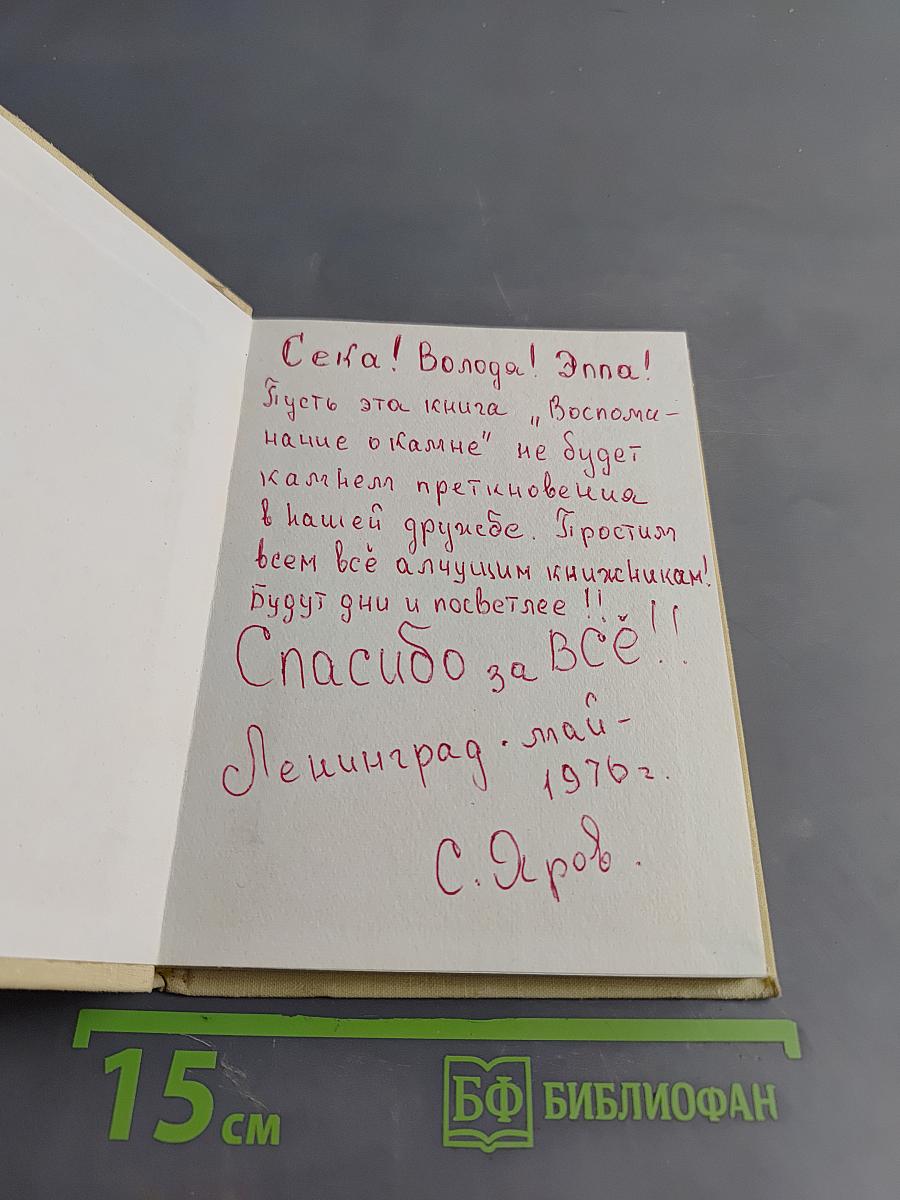 Сека! Волода! Эппа!
Пусть эта книга „Воспоми-
нание о Камне" не будет
камнем преткновения
в нашей дружбе. Простим
всем всё алчущим книжникам!
Будут дни и посветлее!!
Спасибо за ВСЁ!!
Ленинград · май-
1976 г.
С. Яров.
15 см
БФ БИБЛИОФАН